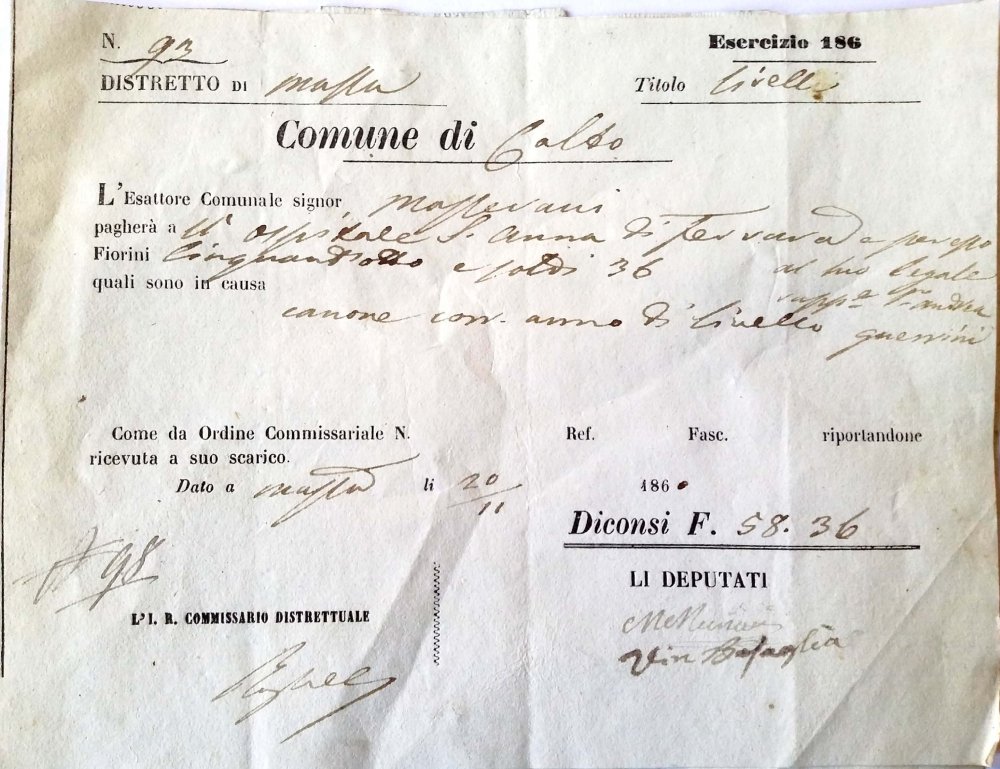 N. 93
Esercizio 186
DISTRETTO DI Massa
Titolo Livelli
Comune di Calto
L'Esattore Comunale signor
pagherà a ll' Ospitale S. Anna di Ferrara e per esso
Fiorini Cinquantotto e soldi 36 al suo legale
quali sono in causa rapp.e Andrea
canone corr. anno di Livello Guerrini
Come da Ordine Commissariale N. Ref. Fasc. riportandone
ricevuta a suo scarico.
Dato a Massa li 20/11 1860
Diconsi F. 58.36
LI DEPUTATI
98
L'I. R. COMMISSARIO DISTRETTUALE